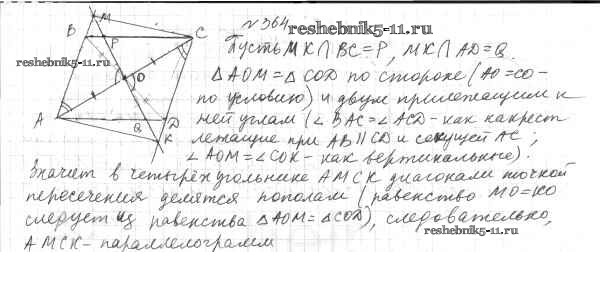 № 364
reshebnik5-11.ru
Пусть MK∩BC=P, MK∩AD=Q.
△AOM=△COD по стороне (AO=CO-
по условию) и двум прилежащим к
ней углам (∠BAC=∠ACD-как накрест
лежащие при AB∥CD и секущей AC;
∠AOM=∠COK-как вертикальные).
Значит в четырёхугольнике AMCK диагонали точкой
пересечения делятся пополам (равенство MO=KO
следует из равенства △AOM=△COD), следовательно,
AMCK-параллелограмм
reshebnik5-11.ru
M
B
P
C
reshebnik5-11.ru
O
A
Q
D
K